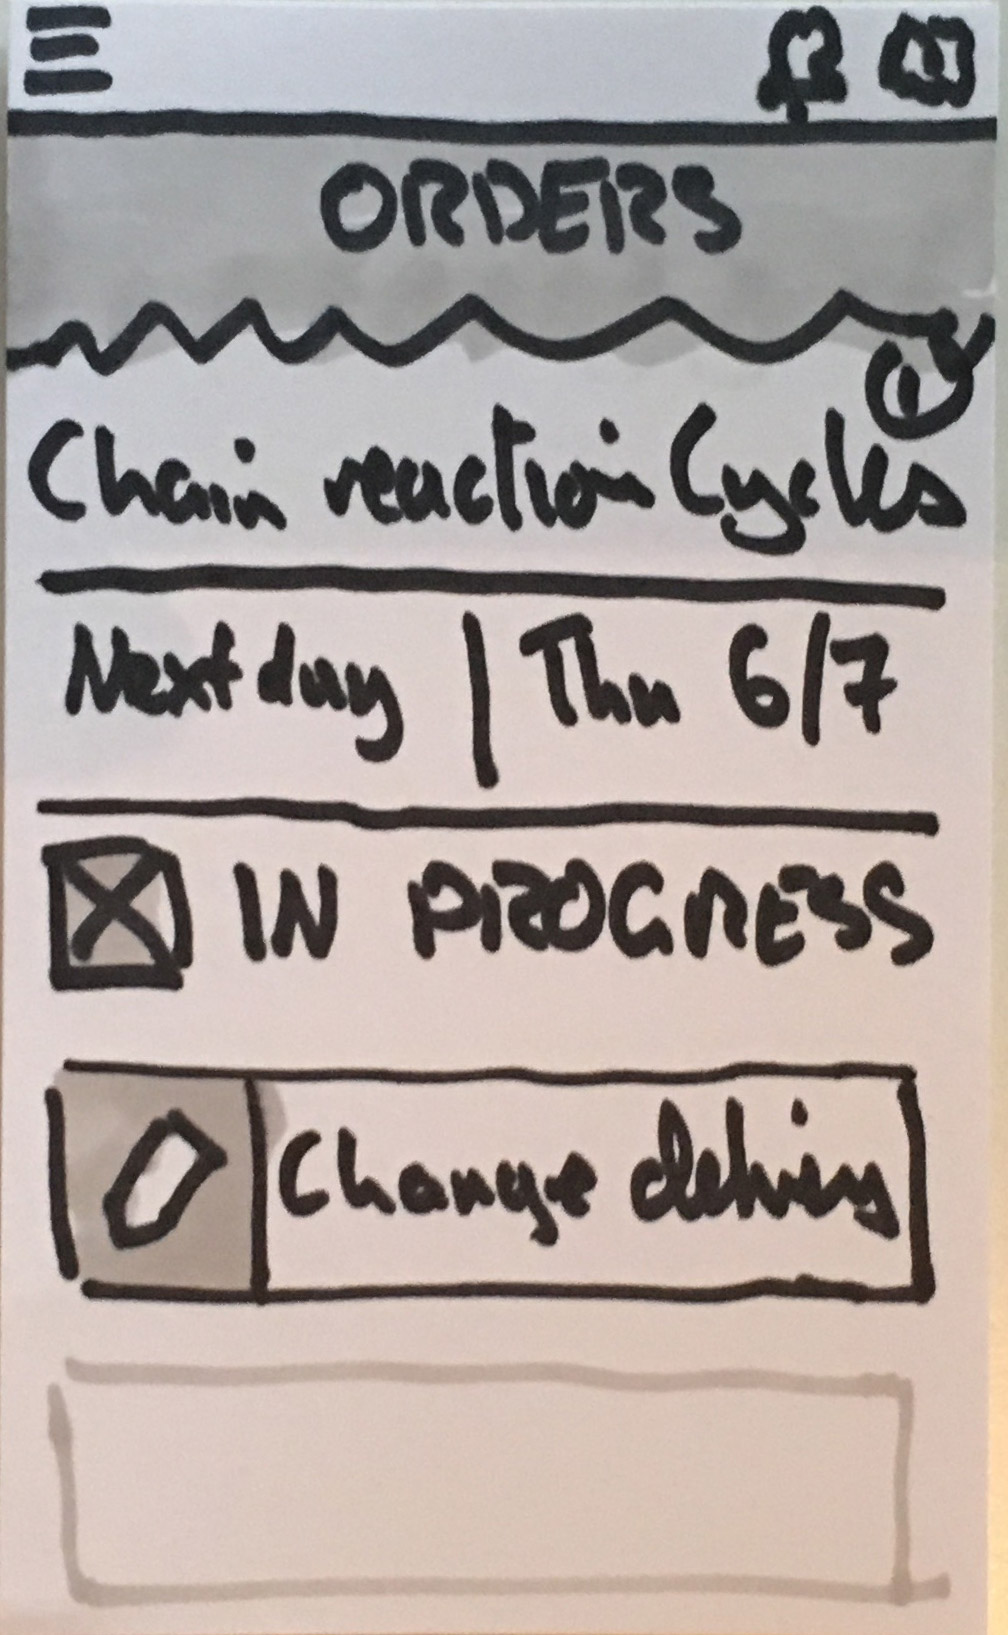 ORDERS
Chain reaction Cycles
Next day | Thu 6/7
IN PROGRESS
Change delivery